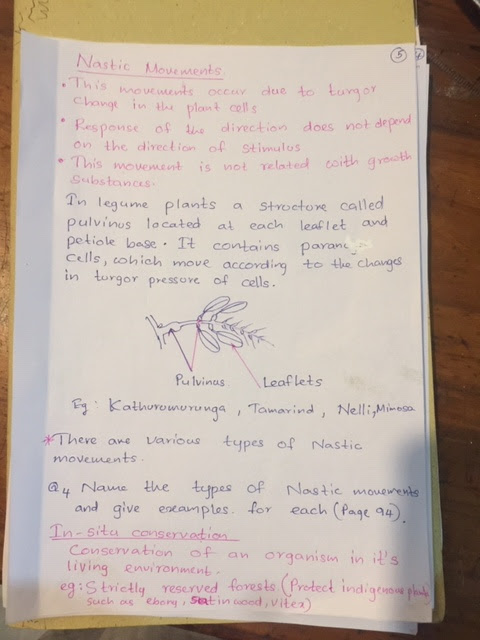 5
Nastic Movements.
• This movements occur due to turgor
change in the plant cells
• Response of the direction does not depend
on the direction of stimulus
• This movement is not related with growth
substances.
In legume plants a structure called
pulvinus located at each leaflet and
petiole base. It contains
cells, which move according to the changes
in turgor pressure of cells.
Pulvinus
Leaflets
Eg: Kathurumurunga, Tamarind, Nelli, Mimosa
*There are various types of Nastic
movements.
Q4 Name the types of Nastic movements
and give examples for each (Page 94).
In-situ conservation
Conservation of an organism in it's
living environment.
eg: Strictly reserved forests (Protect indigenous plants
such as ebony, satinwood, vitex)